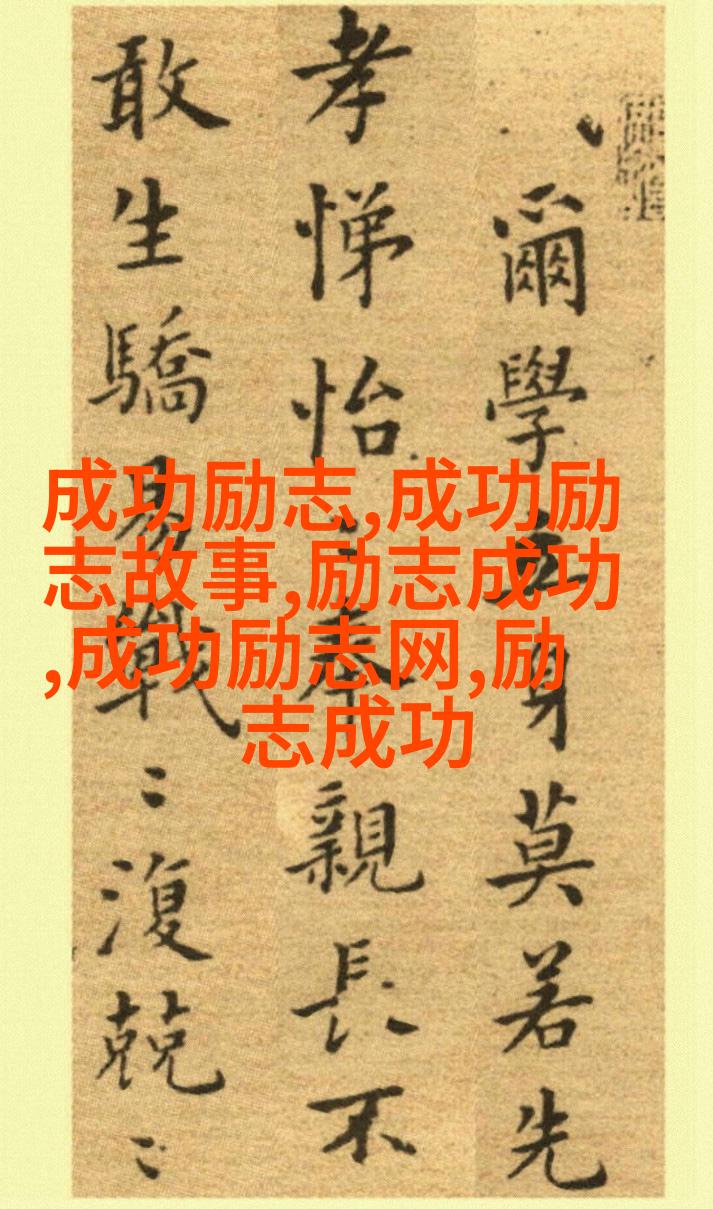 爾學立身莫若先
孝悌怡〻奉親長不
敢生驕易戰〻復兢〻
成功励志,成功励
志故事,励志成功
,成功励志网,励
志成功